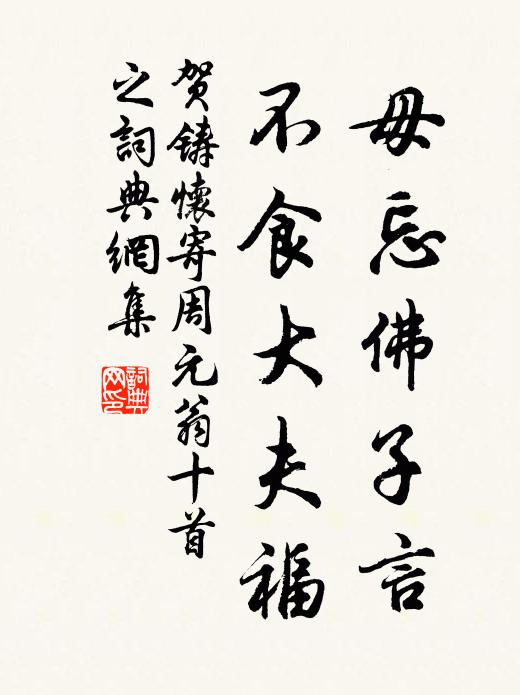 毋忘佛子言
不食大夫福
賀鑄懷寄周元翁十首
之詞典網集
詞典
网印